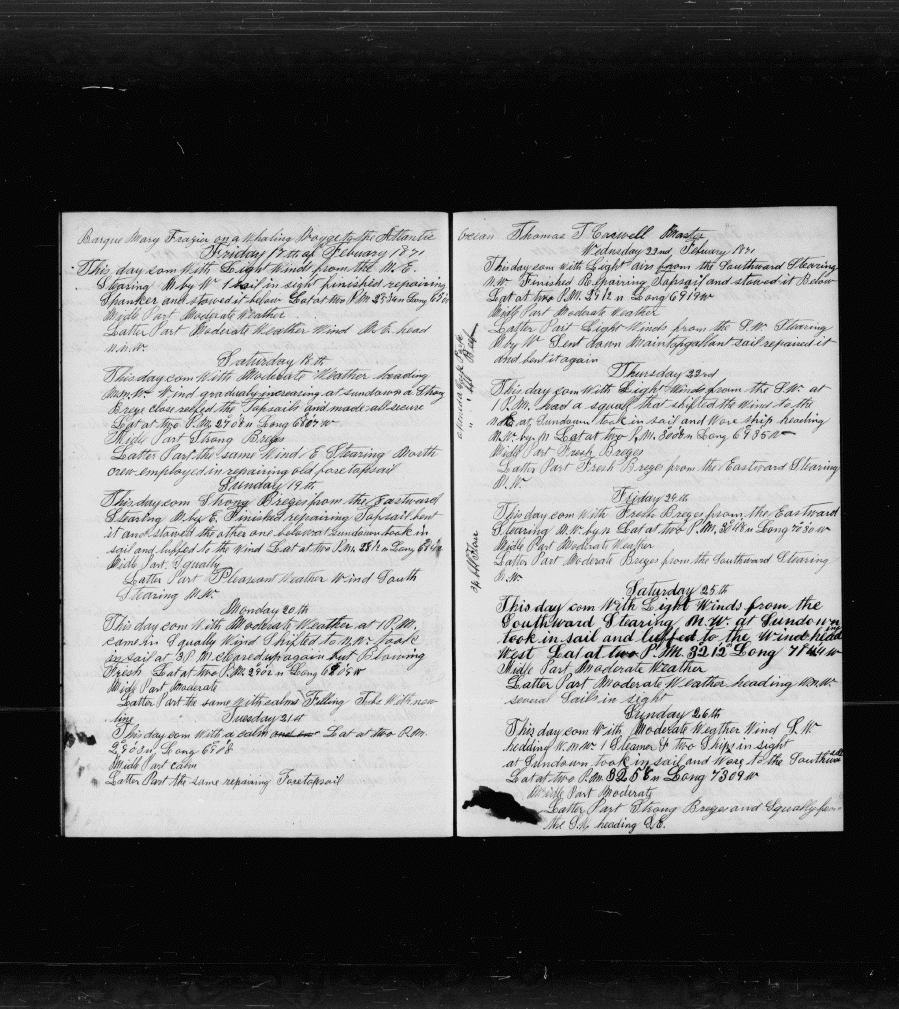 Barque Mary Frazier on a Whaling Voyge to the Atlantic
Friday 17th of Febuary 1871
This day com With Light Winds from the N. E.
Stearing N. by W 1 sail in sight finished repairing
Spanker and stowed it below Lat at two P.M
Midle Part Moderate Weather
Latter Part Moderate Weather Wind N. E. head
N.N.W.
Saturday 18th
This day com With Moderate Weather heading
Wind gradualy increasing at sundown a Strong
Breze close reefed the Topsails and made all secure
Lat at two P.M 27 08 n Long
Midle Part Strong Brezes
Latter Part the same Wind E Stearing North
crew employed in repairing old foretopsail
Sunday 19th
This day com Strong Brezes from the Eastward
Stearing N. by E. Finished repairing Topsail bent
it and stowed the other one below at Sundown took in
sail and luffed to the Wind Lat at two P.M.
Midle Part Squally
Latter Part Pleasant Weather Wind South
Stearing N.W.
Monday 20th
This day com With Moderate Weather at 1 P.M.
came in Squally Wind Shifted to N.W. took
in sail at 3 P.M. cleared up again but Blowing
Fresh Lat at two P.M.
Midle Part Moderate
Latter Part the same With calms
line
Tuesday 21st
This day com With a calm Lat at two P.M.
Midle Part calm
Latter Part the same repairing Foretopsail
ocean Thomas T Caswell Master
Wednsday 22nd Febuary 1871
This day com With Light airs from the Southward Stearing
N.W. Finished Repairring Topsail and stowed it Below
Lat at two P.M. 29 12 n Long 69 19 W
Midle Part Moderate Weather
Latter Part Light Winds from the S.W. Stearing
N by W Sent down Maintopgallant sail repaired it
and bent it again
Thursday 23rd
This day com With Light Winds from the S.W. at
1 P.M. had a squall that shifted the Wind to the
at Sundown took in sail and Wore ship heading
N.W. by N Lat at two P.M. 30 08 n Long 69 35 W
Midle Part Fresh Brezes
Latter Part Fresh Breze from the Eastward Stearing
N.W.
Friday 24th
This day com With Fresh Brezes from the Eastward
Stearing N.W. by N Lat at two P.M. n Long 70 30 W
Midle Part Moderate Weather
Latter Part Moderate Brezes from the Southward Stearing
N.W.
Saturday 25th
This day com With Light Winds from the
Southward Stearing N.W. at Sundown
took in sail and luffed to the Wind heading
West Lat at two P.M. 32 12 Long 71 44 W
Midle Part Moderate Weather
Latter Part Moderate Weather heading W.N.W.
several Sails in sight
Sunday 26th
This day com With Moderate Weather Wind S.W
hedding W.N.W. 1 Steamer & two Ships in sight
at Sundown took in sail and Wore to the Southward
Lat at two P.M 32 56 n Long 73 09 W
Midle Part Moderate
Latter Part Strong Brezes and Squally from
the S.W. heading S.E.